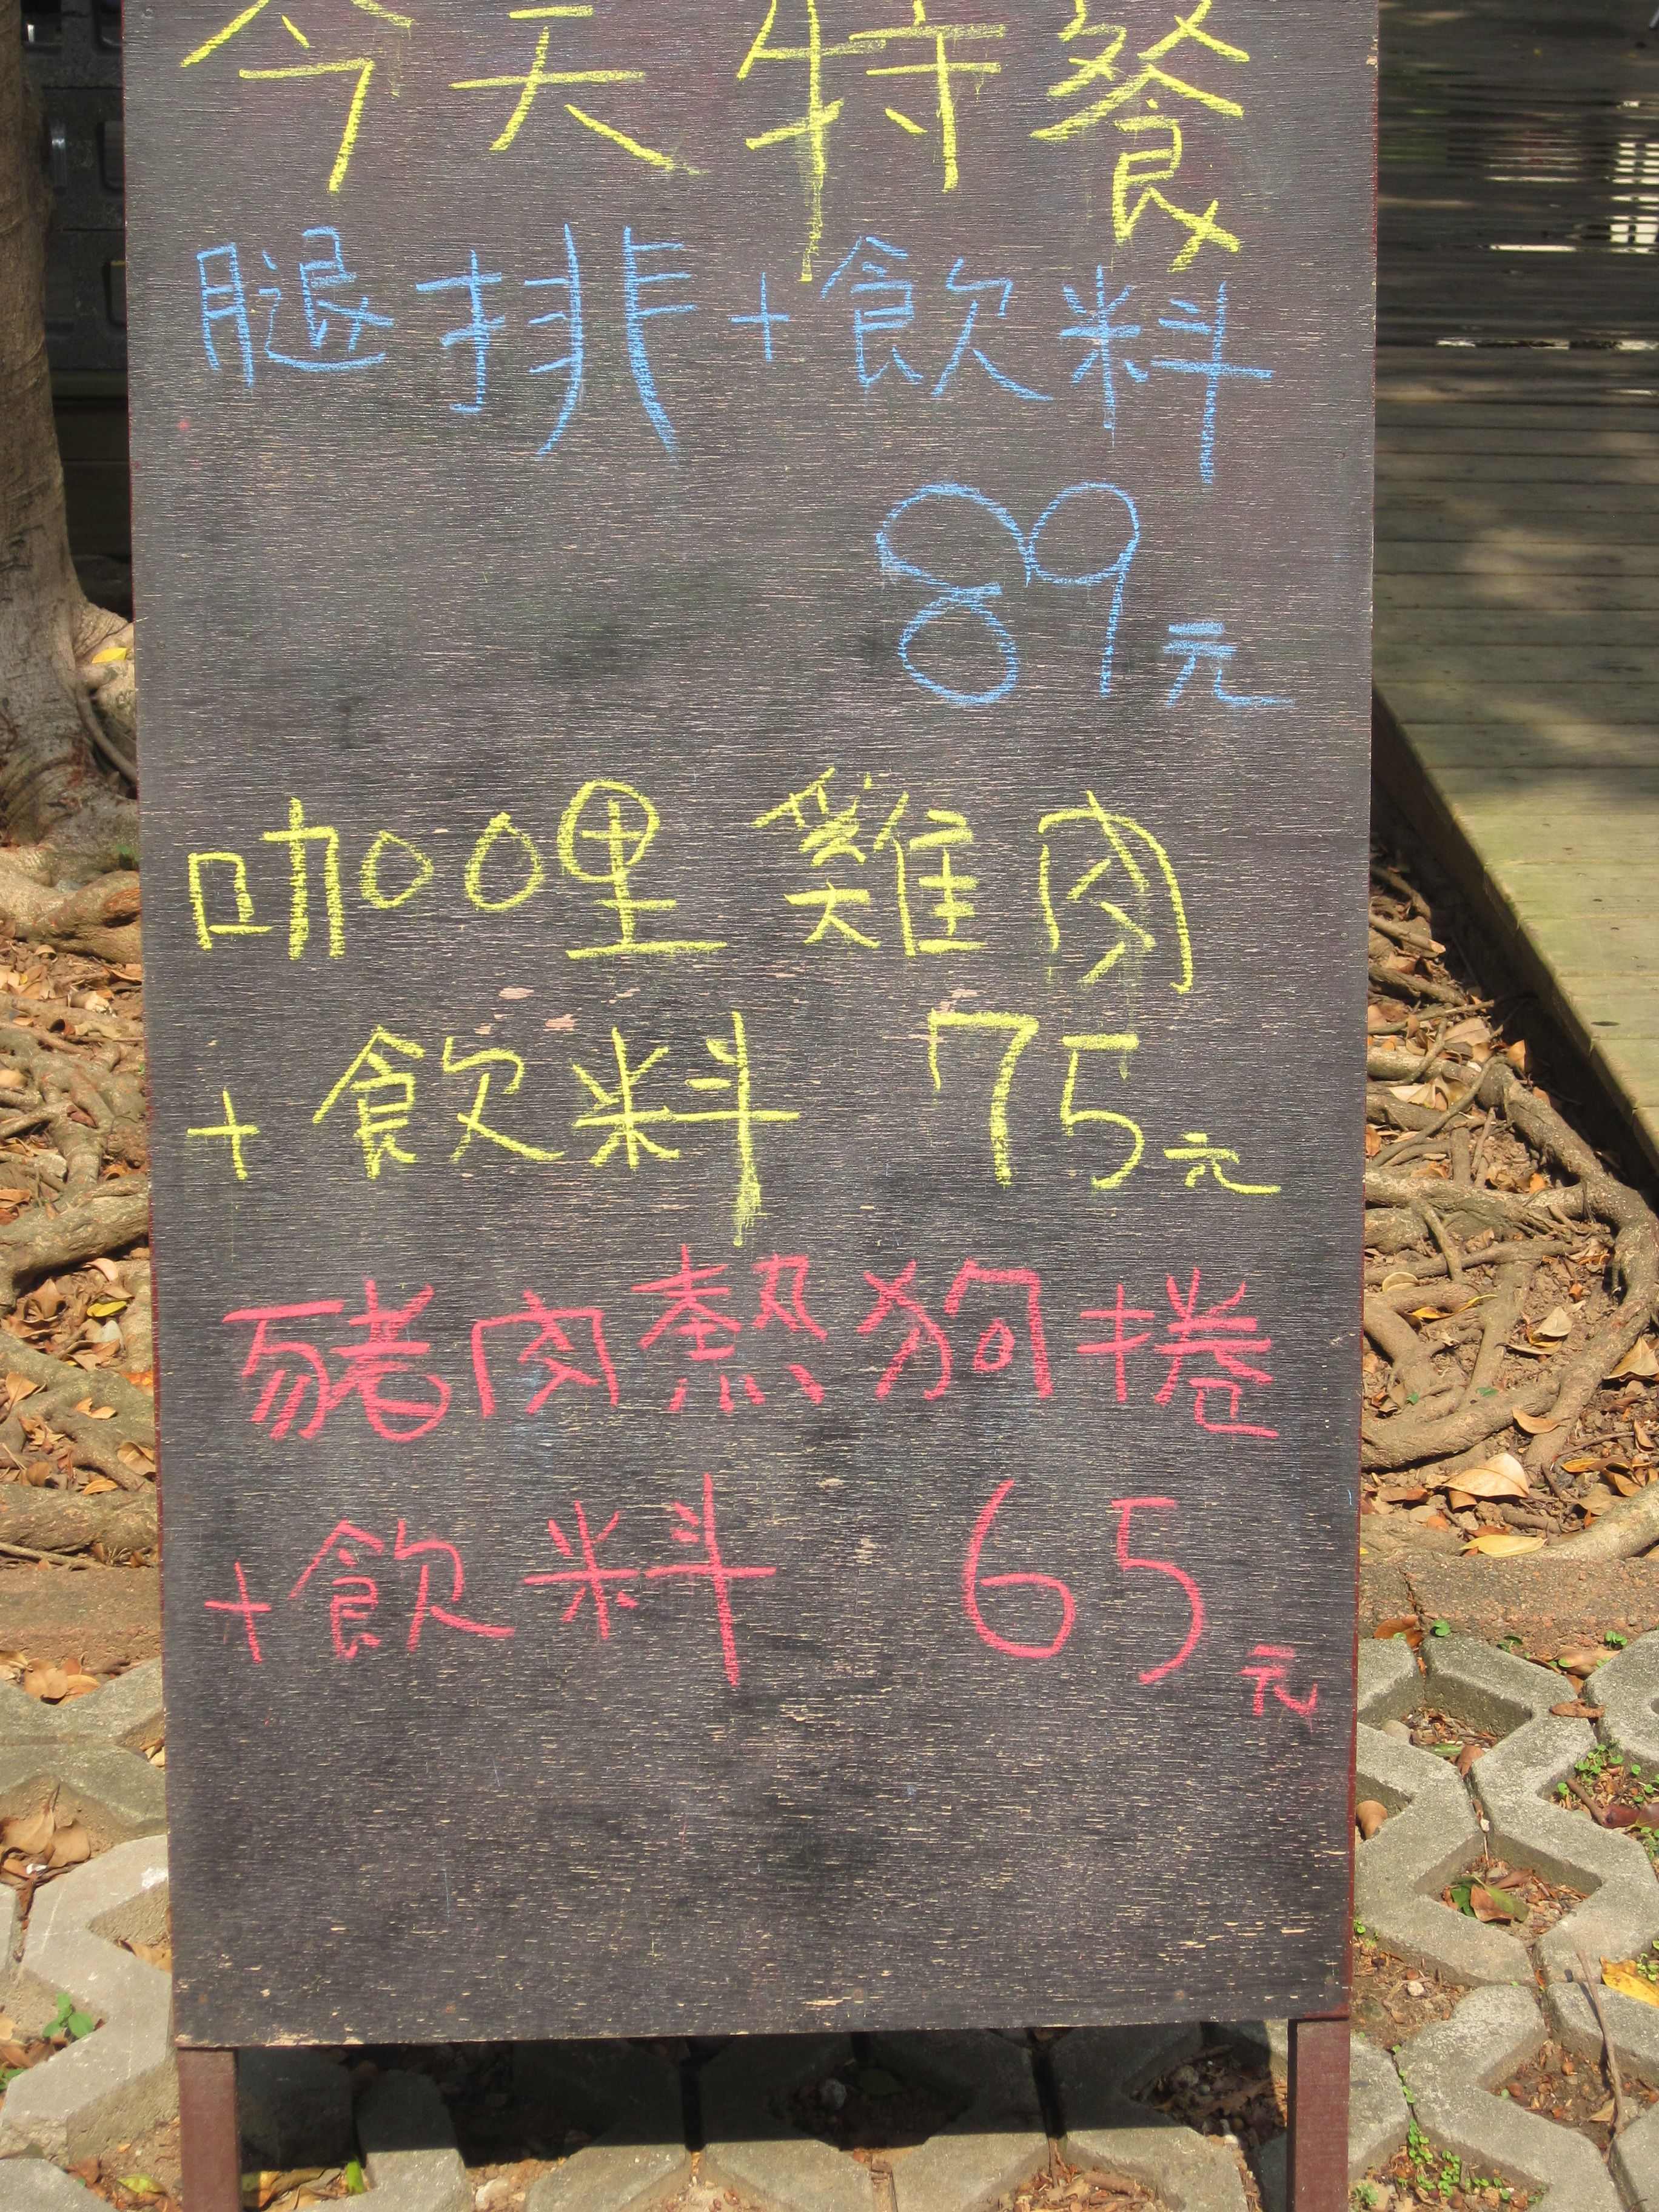 今天特餐
腿排+飲料
89元
咖哩雞肉
+飲料 75元
豬肉熱狗捲
+飲料 65元